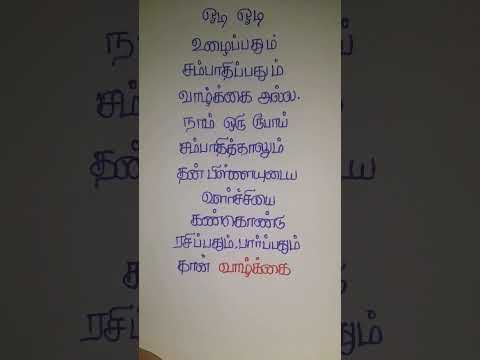 ஓடி ஓடி
உழைப்பதும்
சம்பாதிப்பதும்
வாழ்க்கை அல்ல.
நாம் ஒரு ரூபாய்
சம்பாதித்தாலும்
தன் பிள்ளையுடைய
வளர்ச்சியை
கண்கொண்டு
ரசிப்பதும். பார்ப்பதும்
தான் வாழ்க்கை